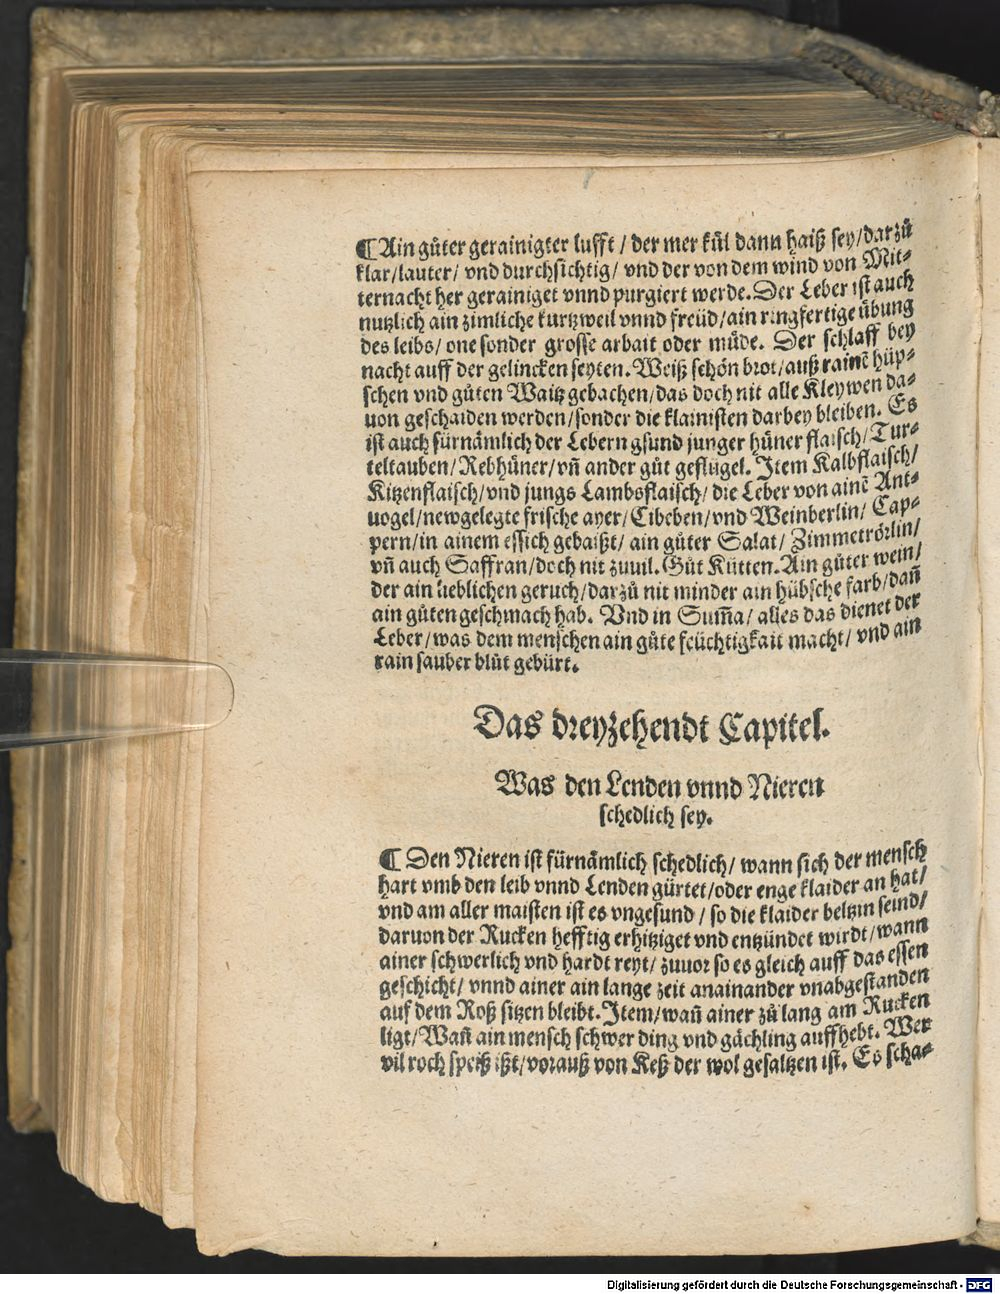 ¶ Ain gůter gerainigter lufft / der mer kül dann haiß sey/darzů
klar/lauter/ vnd durchsichtig/ vnd der von dem wind von Mit⸗
ternacht her gerainiget vnnd purgiert werde. Der Leber ist auch
nutzlich ain zimliche kurtzweil vnnd freüd/ain ringfertige übung
des leibs/ one sonder grosse arbait oder müde. Der schlaff bey
nacht auff der gelincken seyten. Weiß schön brot/auß rainē hüp⸗
schen vnd gůten Waitz gebachen/das doch nit alle Kleywen da⸗
uon geschaiden werden/sonder die klainisten darbey bleiben. Es
ist auch fürnämlich der Lebern gsund junger hüner flaisch/Tur⸗
teltauben/Rebhüner/vñ ander gůt geflügel. Item Kalbflaisch/
Kitzenflaisch/vnd jungs Lambsflaisch/ die Leber von ainē Ant⸗
uogel/newgelegte frische ayer/Cibeben/vnd Weinberlin/ Cap⸗
pern/in ainem essich gebaißt/ ain gůter Salat/ Zimmetrörlin/
vñ auch Saffran/doch nit zuuil. Gůt Kütten. Ain gůter wein/
der ain lieblichen geruch/darzů nit minder ain hübsche farb/dañ
ain gůten geschmach hab. Vnd in Sum̃a/ alles das dienet der
Leber/was dem menschen ain gůte feüchtigkait macht/ vnd ain
rain sauber blůt gebürt.
Das dreyzehendt Capitel.
Was den Lenden vnnd Nieren
schedlich sey.
¶ Den Nieren ist fürnämlich schedlich/ wann sich der mensch
hart vmb den leib vnnd Lenden gürtet/oder enge klaider an hat/
vnd am aller maisten ist es vngesund / so die klaider beltzin seind/
daruon der Rucken hefftig erhitziget vnd entzündet wirdt/wann
ainer schwerlich vnd hardt reyt/ zuuor so es gleich auff das essen
geschicht/ vnnd ainer ain lange zeit anainander vnabgestanden
auf dem Roß sitzen bleibt. Item/wañ ainer zů lang am Rucken
ligt/Wañ ain mensch schwer ding vnd gächling auffhebt. Wer
vil roch speiß ißt/vorauß von Keß der wol gesaltzen ist. Es scha⸗
Digitalisierung gefördert durch die Deutsche Forschungsgemeinschaft - DFG